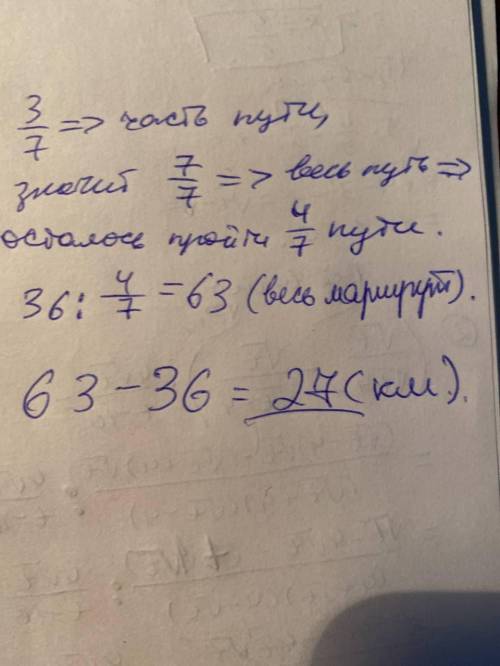 3/7 => часть пути,
значит 7/7 => весь путь =>
осталось пройти 4/7 пути.
36 : 4/7 = 63 (весь маршрут).
63 - 36 = 27 (км).